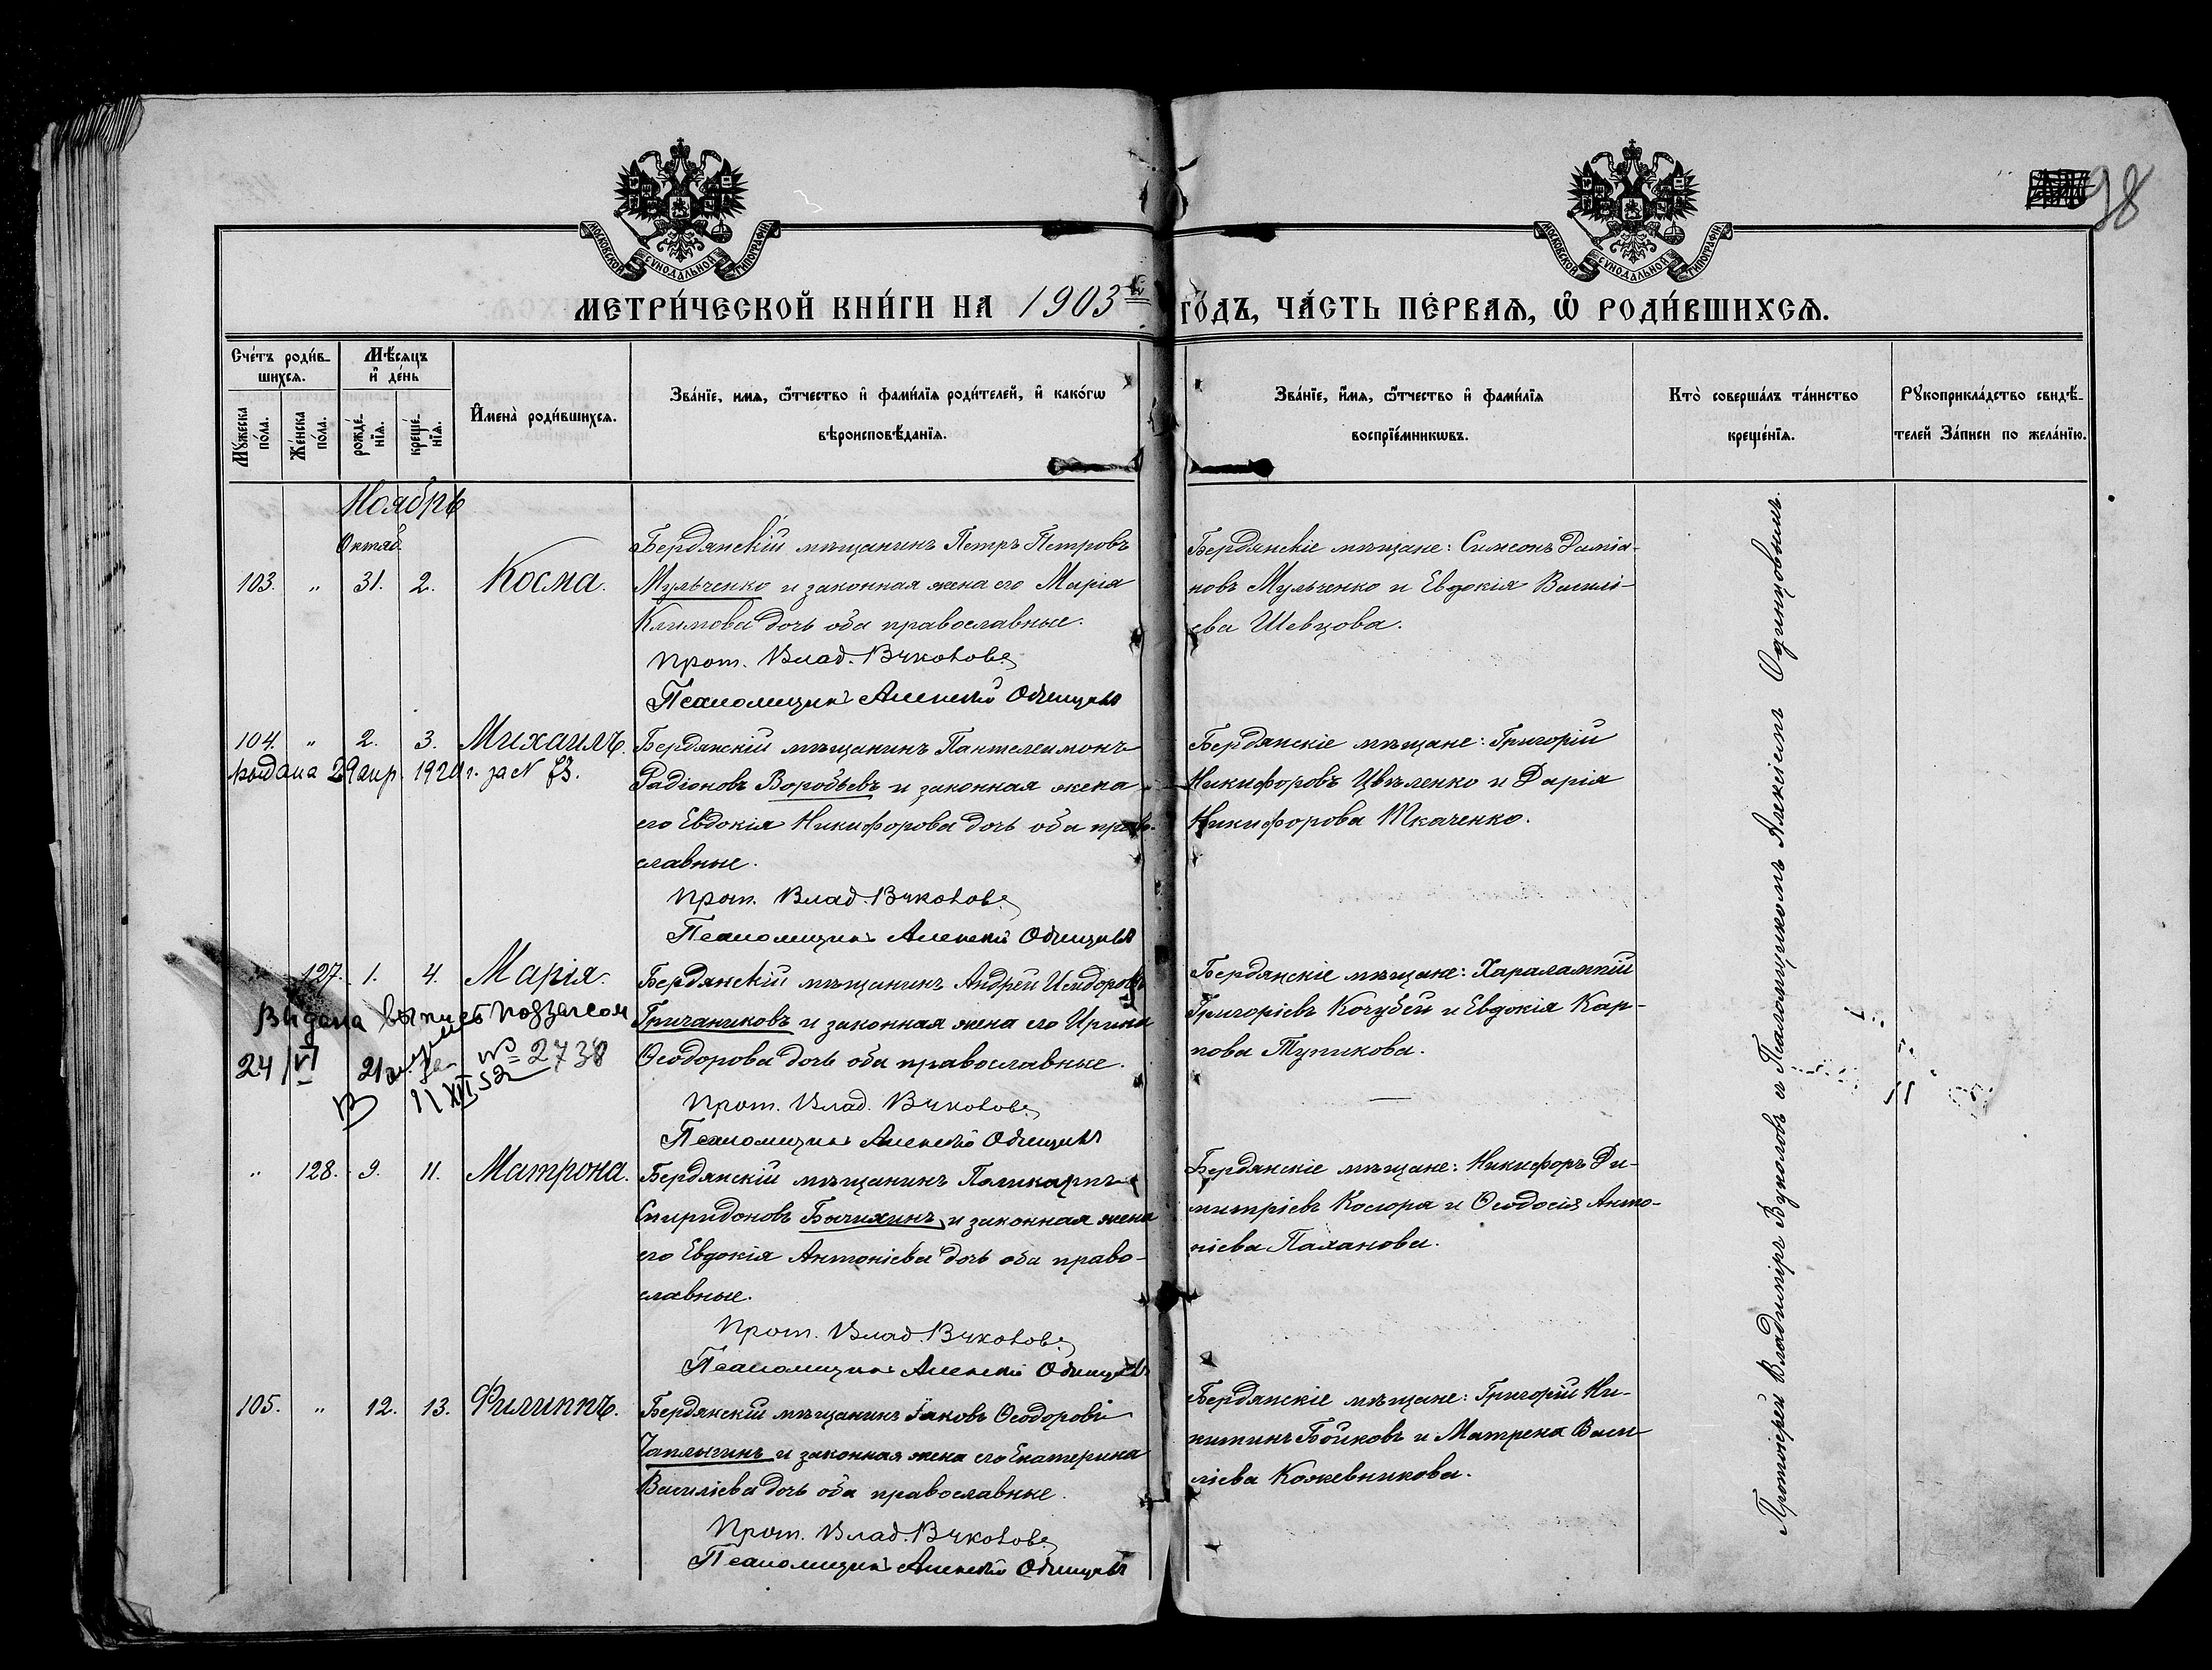 98
МОСКОВСКОЙ СѴНОДАЛЬНОЙ ТИПОГРАФІИ
МОСКОВСКОЙ СѴНОДАЛЬНОЙ ТИПОГРАФІИ
МЕТРИ́ЧЕСКОЙ КНИ́ГИ НА 1903й ГО́ДЪ, ЧА́СТЬ ПЕ́РВАѦ, Ѡ҆ РОДИ́ВШИХСѦ.
Сче́тъ роди́в-
шихсѧ.
Мꙋ́жеска по́ла.
Же́нска по́ла.
Мѣ́сѧцъ
и҆ де́нь
рожде́-
нїѧ.
креще́-
нїѧ.
И҆мена̀ роди́вшихсѧ.
Зва́нїе, имѧ, ѻ҆́тчество и҆ фами́лїѧ роди́телей, и҆ како́гѡ
вѣроисповѣ́данїѧ.
Зва́нїе, и҆́мѧ, ѻ҆́тчество и҆ фами́лїѧ
воспрїе́мникѡвъ.
Кто̀ соверша́лъ та́инство
креще́нїѧ.
Рꙋкоприкла́дство свидѣ́-
телей За́писи по жела́нїю.
Ноябрь
Октяб.
103. " 31. 2. Косма.
Бердянскій мѣщанинъ Петръ Петровъ
Мульченко и законная жена его Марія
Климова дочь оба православные.
Прот. Влад. Вуколовъ
Псаломщикъ Алексѣй Одинцовъ
Бердянскіе мѣщане: Симеонъ Даміа-
новъ Мульченко и Евдокія Василі-
ева Шевцова.
104. " 2. 3. Михаилъ.
Выдана 29 апр. 1920 г. за N 73.
Бердянскій мѣщанинъ Пантелеимонъ
Радіоновъ Воробьевъ и законная жена
его Евдокія Никифорова дочь оба право-
славные.
Прот. Влад. Вуколовъ
Псаломщикъ Алексѣй Одинцовъ
Бердянскіе мѣщане: Григорій
Никифоровъ Цвѣленко и Дарія
Никифорова Ткаченко.
" 127. 1. 4. Марія.
Видана выпись
24/VI 21
№ 2738
11 XII 52
Бердянскій мѣщанинъ Андрей Исидоровъ
Гричаниковъ и законная жена его Ирина
Ѳеодорова дочь оба православные.
Прот. Влад. Вуколовъ
Псаломщикъ Алексѣй Одинцовъ
Бердянскіе мѣщане: Харалампій
Григоріевъ Кочубей и Евдокія Кар-
пова Тупикова.
" 128. 9. 11. Матрона.
Бердянскій мѣщанинъ Поликарпъ
Спиридоновъ Бочихинъ и законная жена
его Евдокія Антоніева дочь оба право-
славные.
Прот. Влад. Вуколовъ
Псаломщикъ Алексѣй Одинцовъ
Бердянскіе мѣщане: Никифоръ Ди-
митріевъ Косюра и Ѳеодосія Анто-
ніева Паланова.
105. " 12. 13. Филиппъ.
Бердянскій мѣщанинъ Іаковъ Ѳеодоровъ
Чаплыгинъ и законная жена его Екатерина
Василіева дочь оба православные.
Прот. Влад. Вуколовъ
Псаломщикъ Алексѣй Одинцовъ
Бердянскіе мѣщане: Григорій Ни-
китинъ Бойковъ и Матрена Васи
ліева Кожевникова.
Протоіерей Владиміръ Вуколовъ съ Псаломщикомъ Алексіемъ Одинцовымъ.